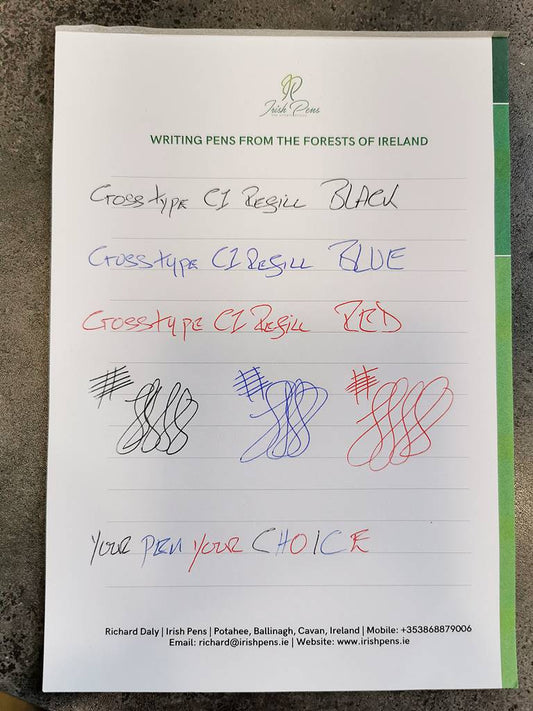 Irish Pens
WRITING PENS FROM THE FORESTS OF IRELAND
Cross type C1 Refill BLACK
Cross type C1 Refill BLUE
Cross type C1 Refill RED
YOUR PEN YOUR CHOICE
Richard Daly | Irish Pens | Potahee, Ballinagh, Cavan, Ireland | Mobile: +353868879006
Email: richard@irishpens.ie | Website: www.irishpens.ie